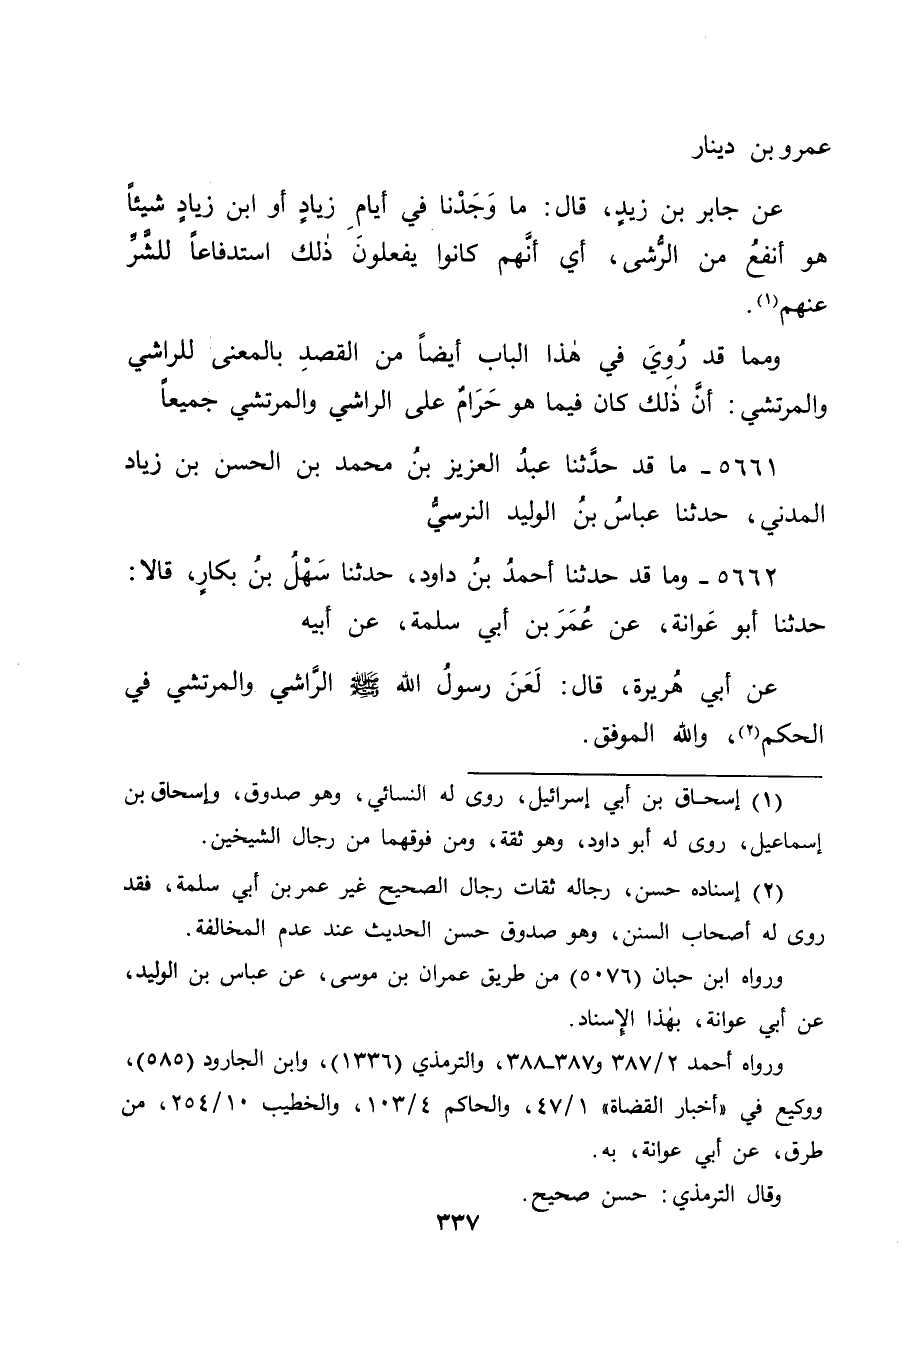 عمرو بن دينار
عن جابر بن زيدٍ، قال: ما وَجَدْنا في أيامِ زيادٍ أو ابن زيادٍ شيئاً
هو أنفعُ من الرُّشى، أي أنَّهم كانوا يفعلونَ ذٰلك استدفاعاً للشَّرِّ
عنهم(١).
ومما قد رُوِيَ في هٰذا الباب أيضاً من القصدِ بالمعنى للراشي
والمرتشي: أنَّ ذٰلك كان فيما هو حَرَامٌ على الراشي والمرتشي جميعاً
٥٦٦١ - ما قد حدَّثنا عبدُ العزيز بنُ محمد بن الحسن بن زياد
المدني، حدثنا عباسُ بنُ الوليد النرسيُّ
٥٦٦٢ - وما قد حدثنا أحمدُ بنُ داود، حدثنا سَهْلُ بنُ بكارٍ، قالا:
حدثنا أبو عَوانة، عن عُمَرَ بن أبي سلمة، عن أبيه
عن أبي هُريرة، قال: لَعَنَ رسولُ الله ﷺ الرَّاشي والمرتشي في
الحكم(٢)، والله الموفق.
(١) إسحاق بن أبي إسرائيل، روى له النسائي، وهو صدوق، وإسحاق بن
إسماعيل، روى له أبو داود، وهو ثقة، ومن فوقهما من رجال الشيخين.
(٢) إسناده حسن، رجاله ثقات رجال الصحيح غير عمر بن أبي سلمة، فقد
روى له أصحاب السنن، وهو صدوق حسن الحديث عند عدم المخالفة.
ورواه ابن حبان (٥٠٧٦) من طريق عمران بن موسى، عن عباس بن الوليد،
عن أبي عوانة، بهٰذا الإِسناد.
ورواه أحمد ٣٨٧/٢ و٣٨٧-٣٨٨، والترمذي (١٣٣٦)، وابن الجارود (٥٨٥)،
ووكيع في «أخبار القضاة» ٤٧/١، والحاكم ١٠٣/٤، والخطيب ٢٥٤/١٠، من
طرق، عن أبي عوانة، به.
وقال الترمذي: حسن صحيح.
٣٣٧